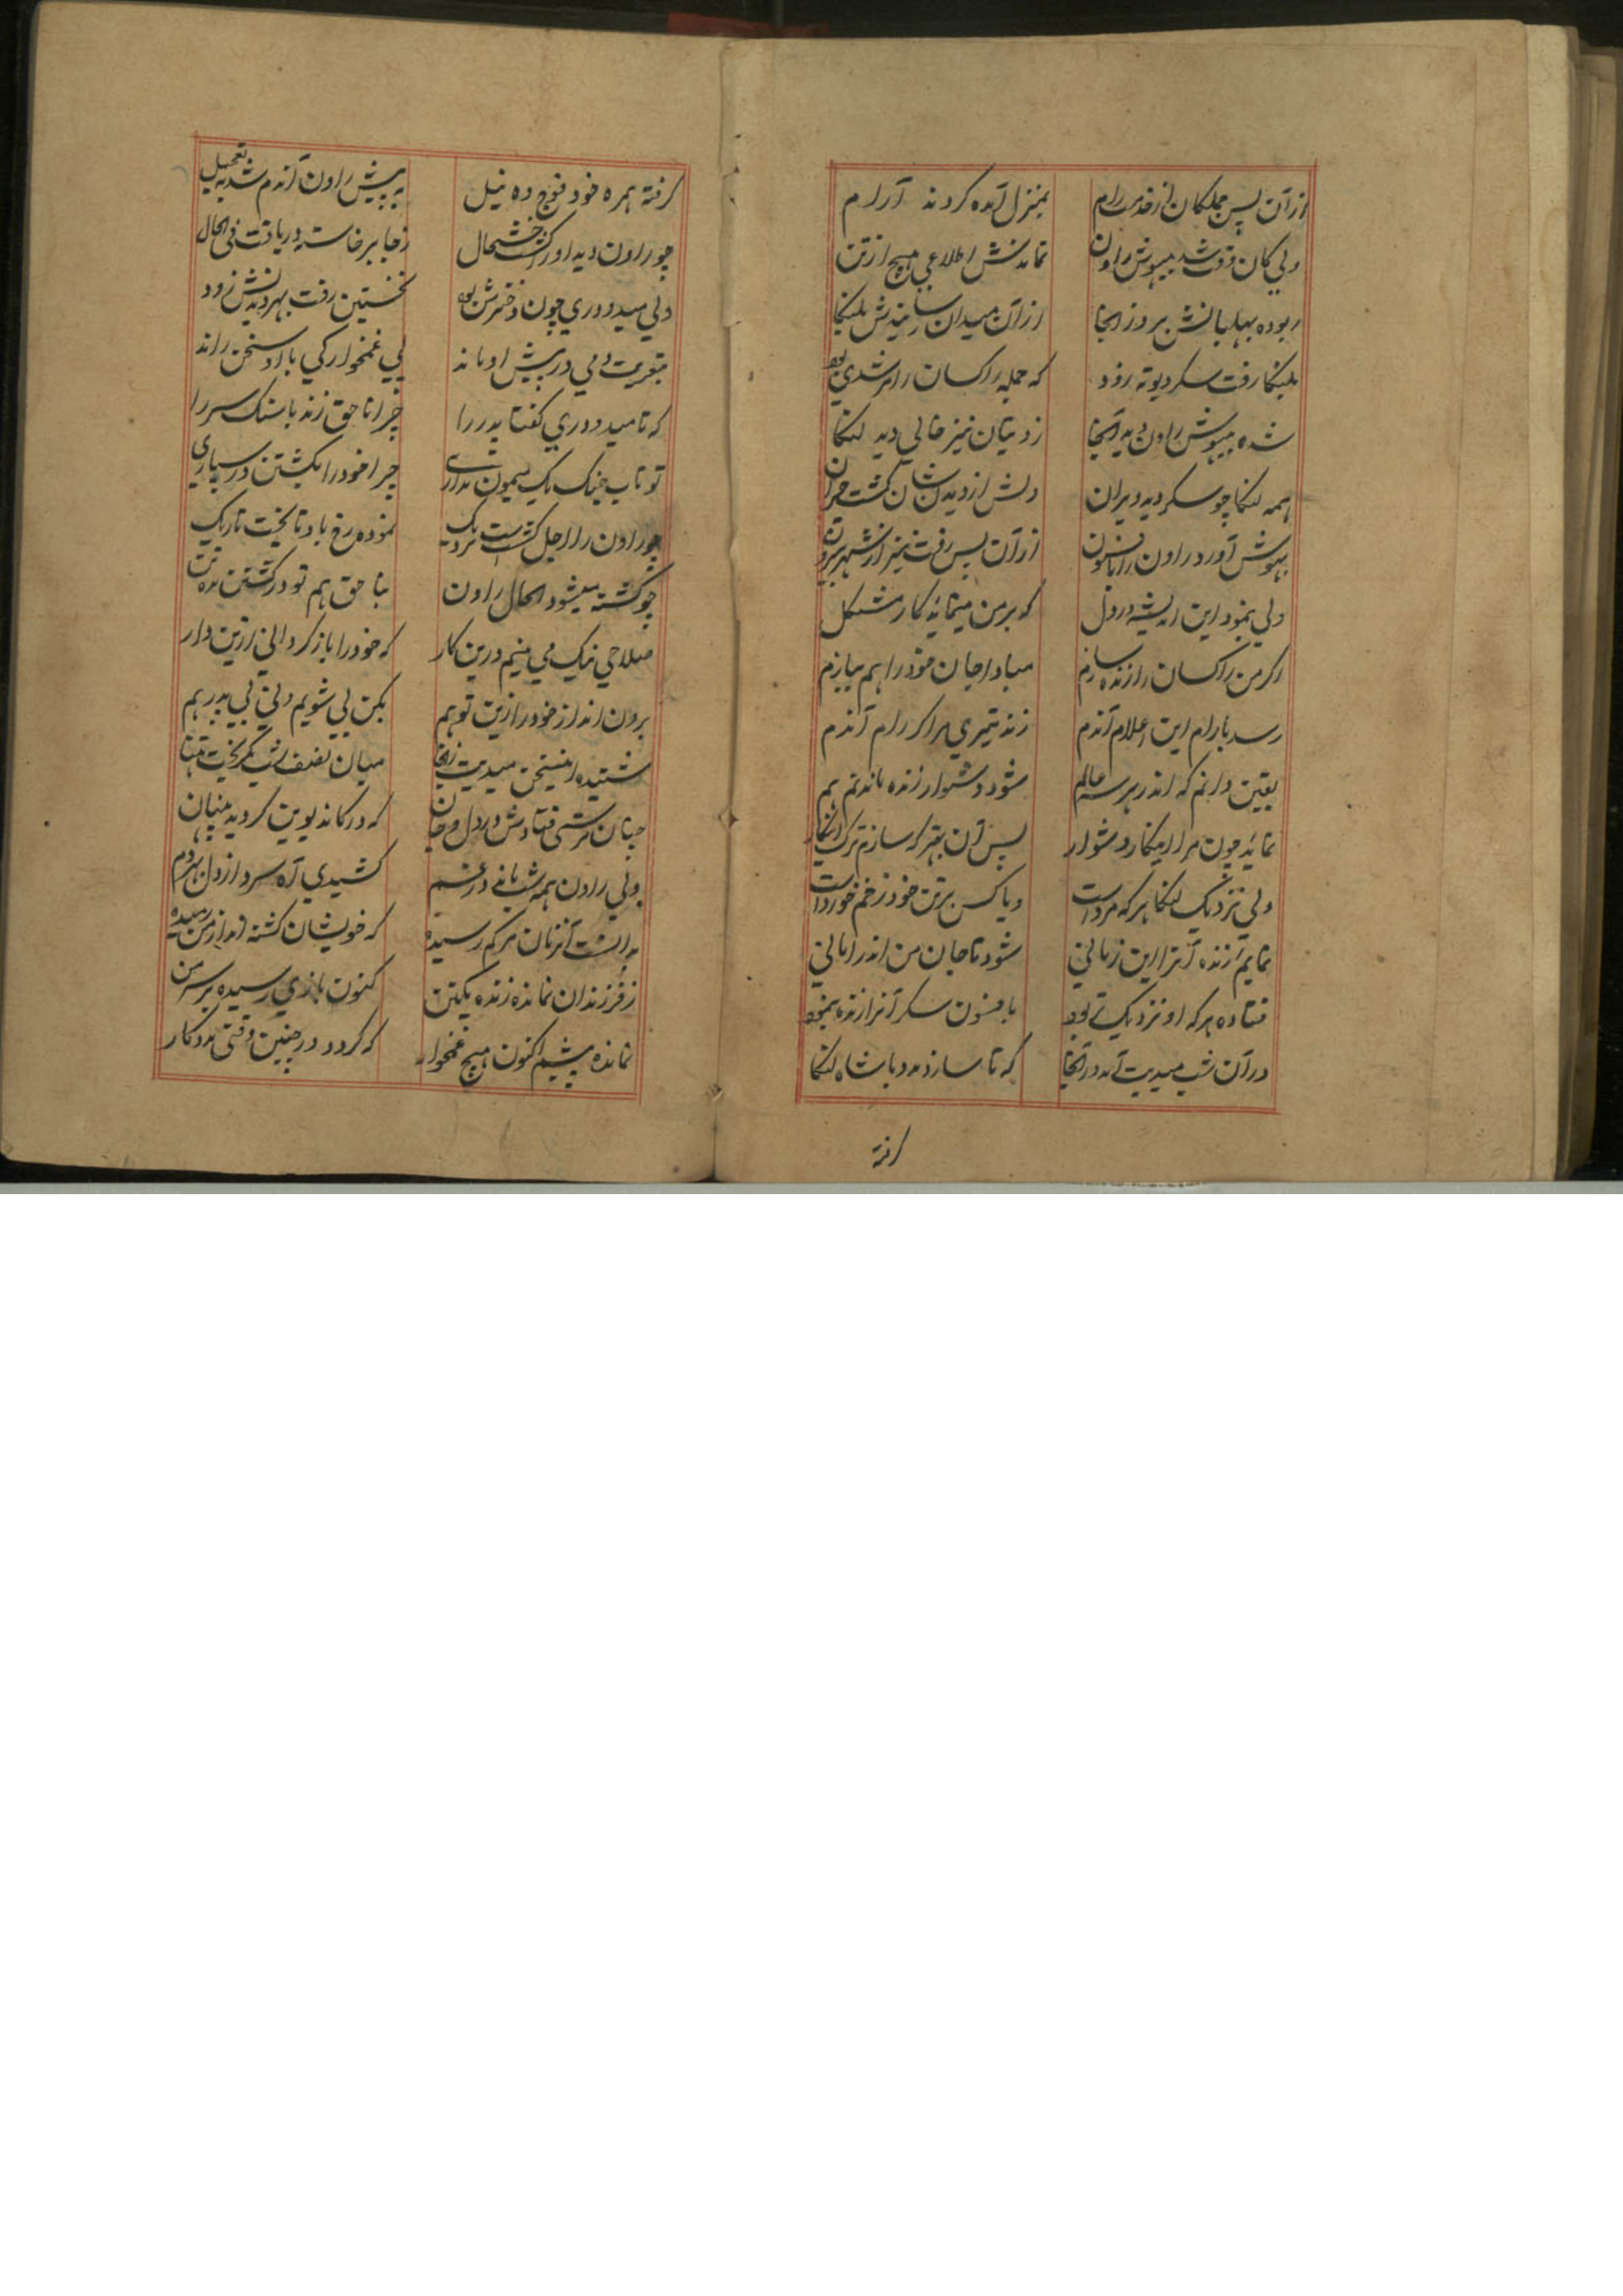 از آن پس جملکان از خدمت رام بمنزل آمده کردند آرام
ولی کان وقت شد بیهوش راون نماندش اطلاعی هیچ از تن
ربوده بهلبانش بر در آنجا از آن میدان رسانیدش بلنکا
بلنکا رفت سکر دیوته زود که جمله راکسان را مرشدی بود
شده بیهوش راون دید آنجا ز دیتان نیز خالی دید لنکا
همه لنکا چو سکر دید ویران دلش از دیدن شان کشت حیران
بهوش آورد راون را بافسون از آن پس رفت نیز از شهر بیرون
ولی بنمود این اندیشه در دل که بر من مینماید کار مشکل
اکر من راکسان را زنده سازم مبادا جان خود را هم ببازم
رسد با رام این اعلام آندم زند تیری مرا کر رام آندم
یقین دانم که اندر هر سه عالم شود دشوار زنده ماندنم هم
نماید چون مرا اینکار دشوار پس آن بهتر که سازم ترک اینکار
ولی نزدیک لنکا هر که مرد است و یا کس بر تن خود زخم خورد است
نمایم زنده آنرا این زمانی شود تا جان من اندر امانی
فتاده هر که او نزدیک تر بود بافسون سکر آنرا زنده بنمود
در آن شب میدیت آمد در آنجا که تا سازد مدد با شاه لنکا
کرفته
کرفته همره خود فوج ده نیل به پیش راون آندم شد بتعجیل
چو راون دید او را کشت خوشحال ز جا برخاسته دریافت فی الحال
ولی میدودری چون دخترش بود نخستین رفت بهر دیدنش زود
بتعزیت دمی در پیش او ماند پی غمخوارکی با او سخن راند
که تا میدودری کفتا پدر را چرا ناحق زند با سنک سر را
تو تاب جنک یک میمون نداری چرا خود را بکشتن در سپاری
چو راون را اجل کشت است نزدیک نموده رخ باو تا بخت تاریک
چو کشته میشود الحال راون بناحق هم تو در کشتن مده تن
صلاحی نیک می بینم درین کار که خود را باز کردانی ازین دار
برون انداز خود را زین تو هم بکن پی شویم ولی بی پدر هم
شنیده این سخن میدیت زانجا میان نصف شب بکریخت تنها
چنان ترسی فتادش در دل و جان که در کاندیوبن کردید پنهان
ولی راون همه شب ماند در غم کشیدی آه سرد از دل بهر دم
بدانست آنزمان مرکم رسیده که خویشان کشته اند از من رمیده
ز فرزندان نمانده زنده یکتن کنون بازی رسیده بر سر من
نمانده پیشم اکنون هیچ غمخوار که کردد در چنین وقتی مددکار